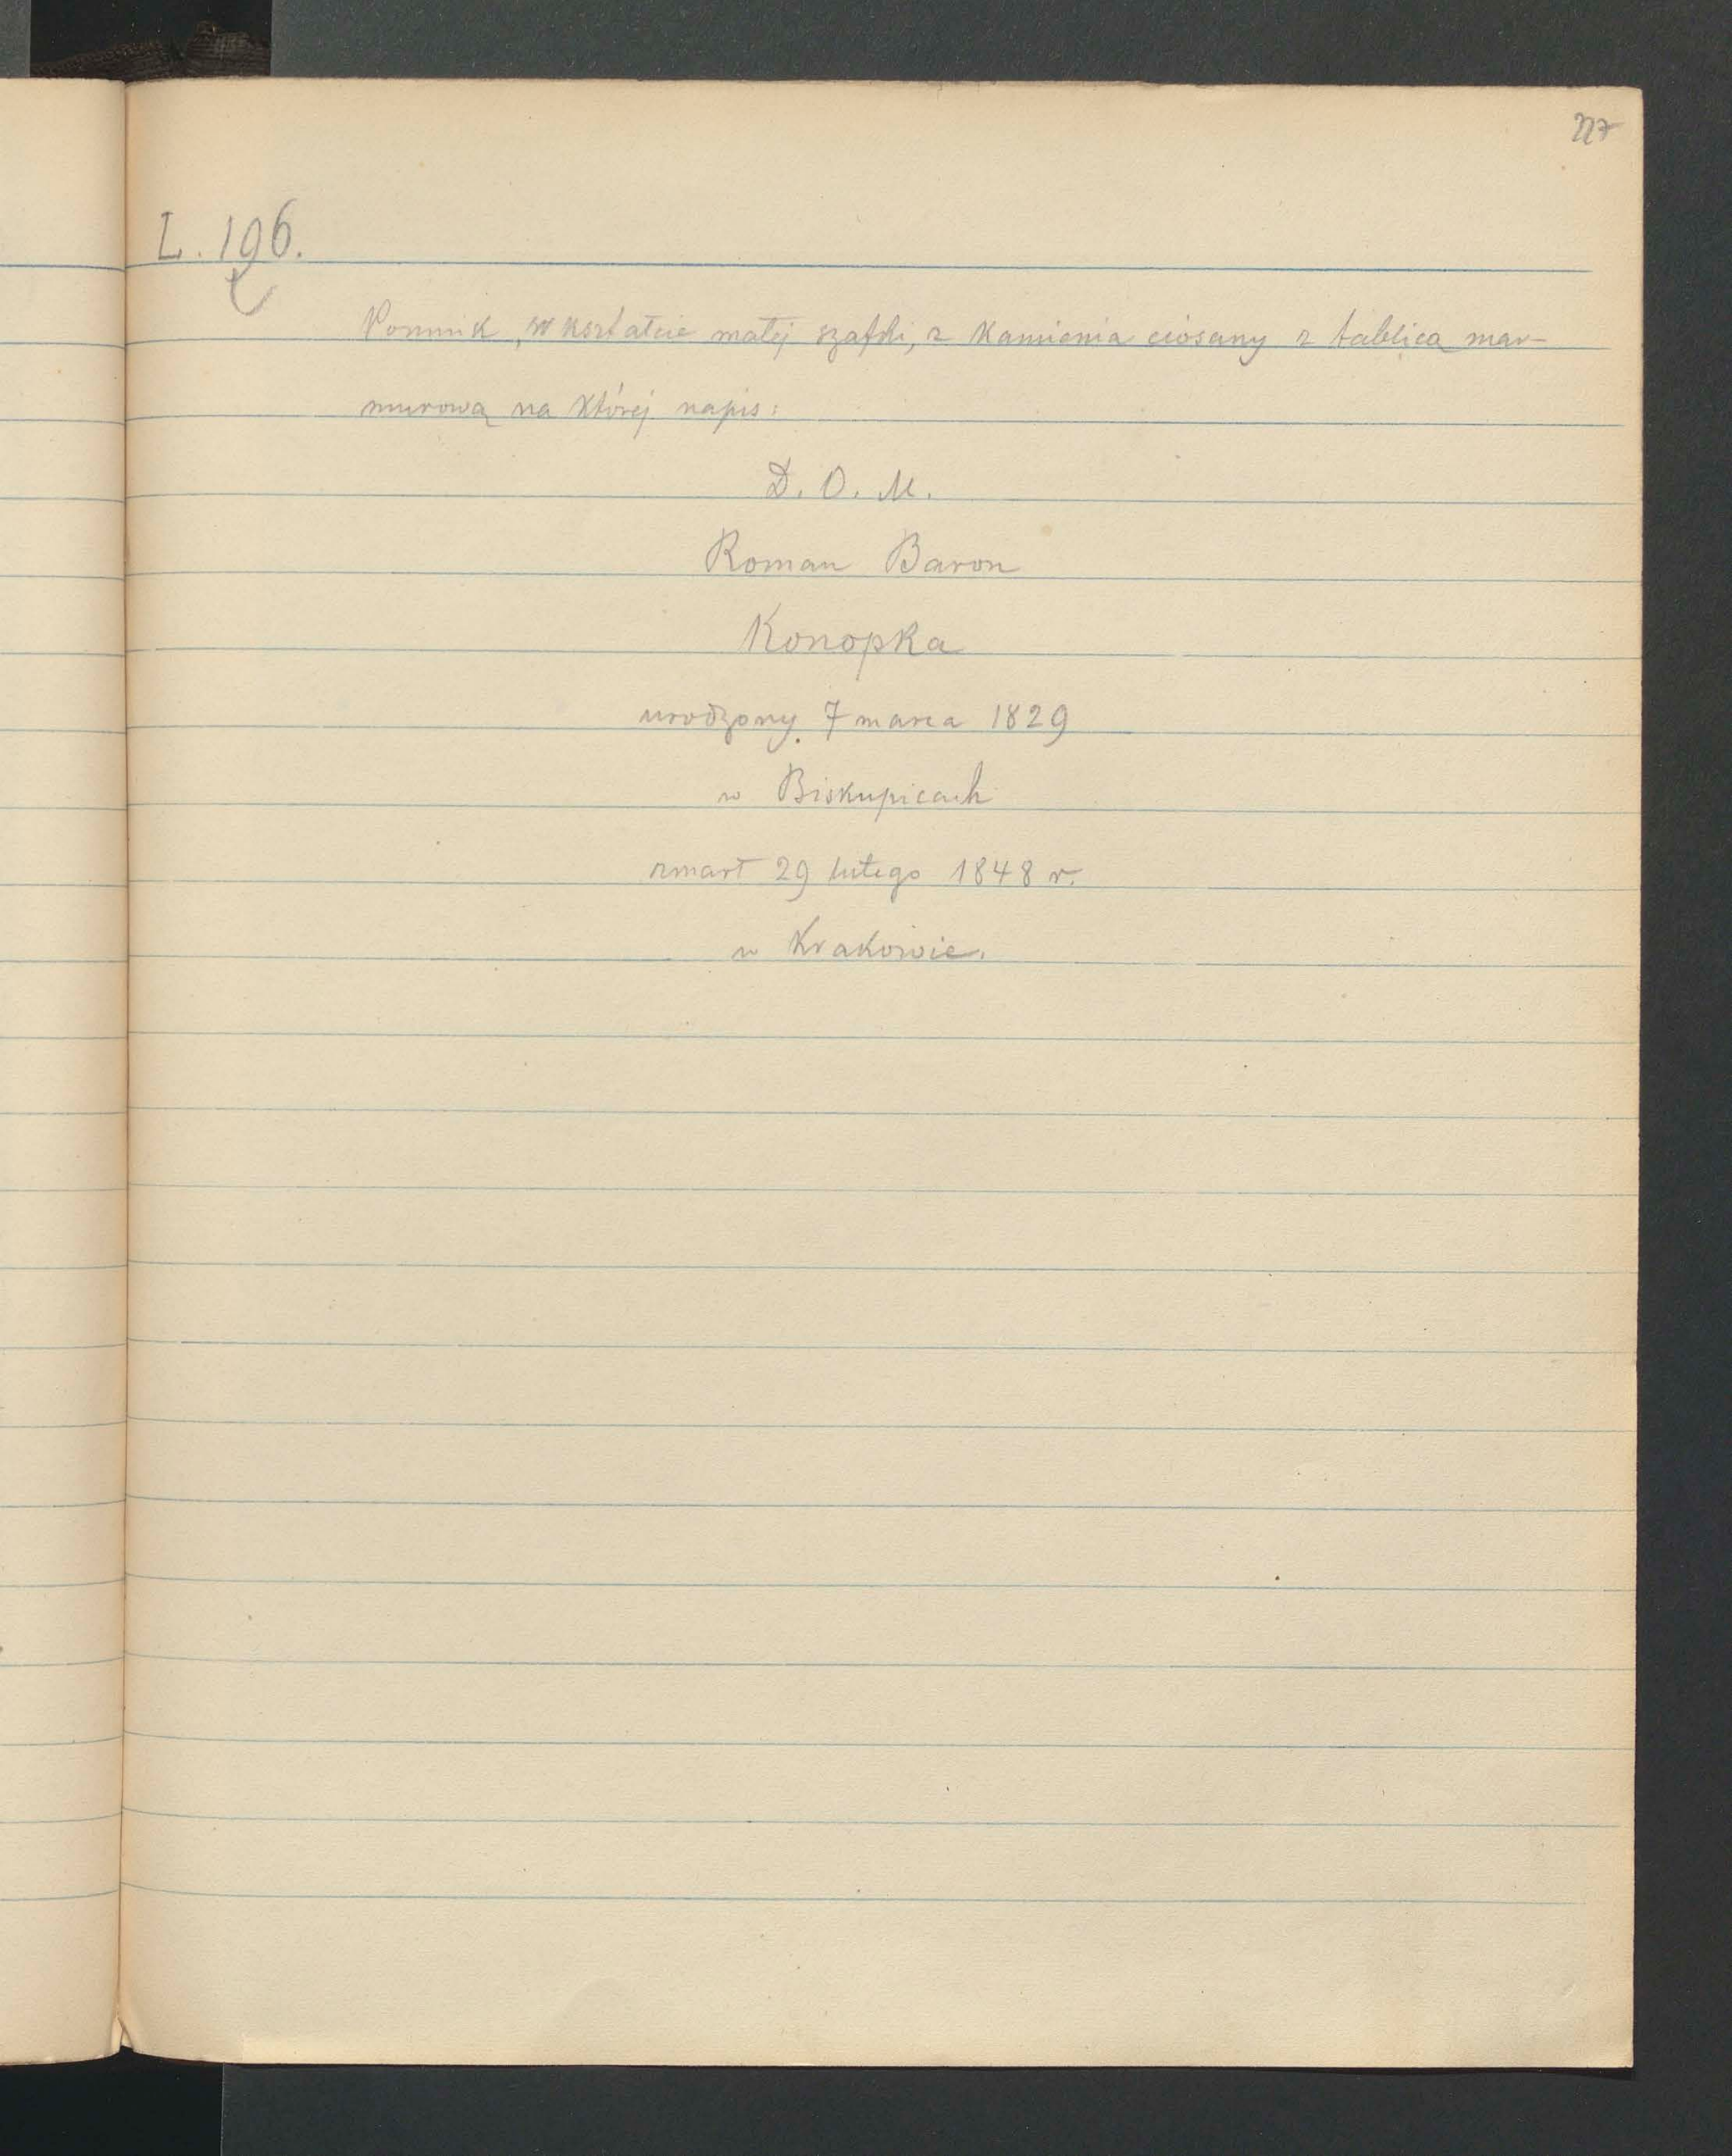 227
L. 196.
Pomnik, w kształcie małej szafki, z kamienia ciosany z tablicą mar-
murową na której napis:
D. O. M.
Roman Baron
Konopka
urodzony 7 marca 1829
w Biskupicach
zmarł 29 lutego 1848 r.
w Krakowie.